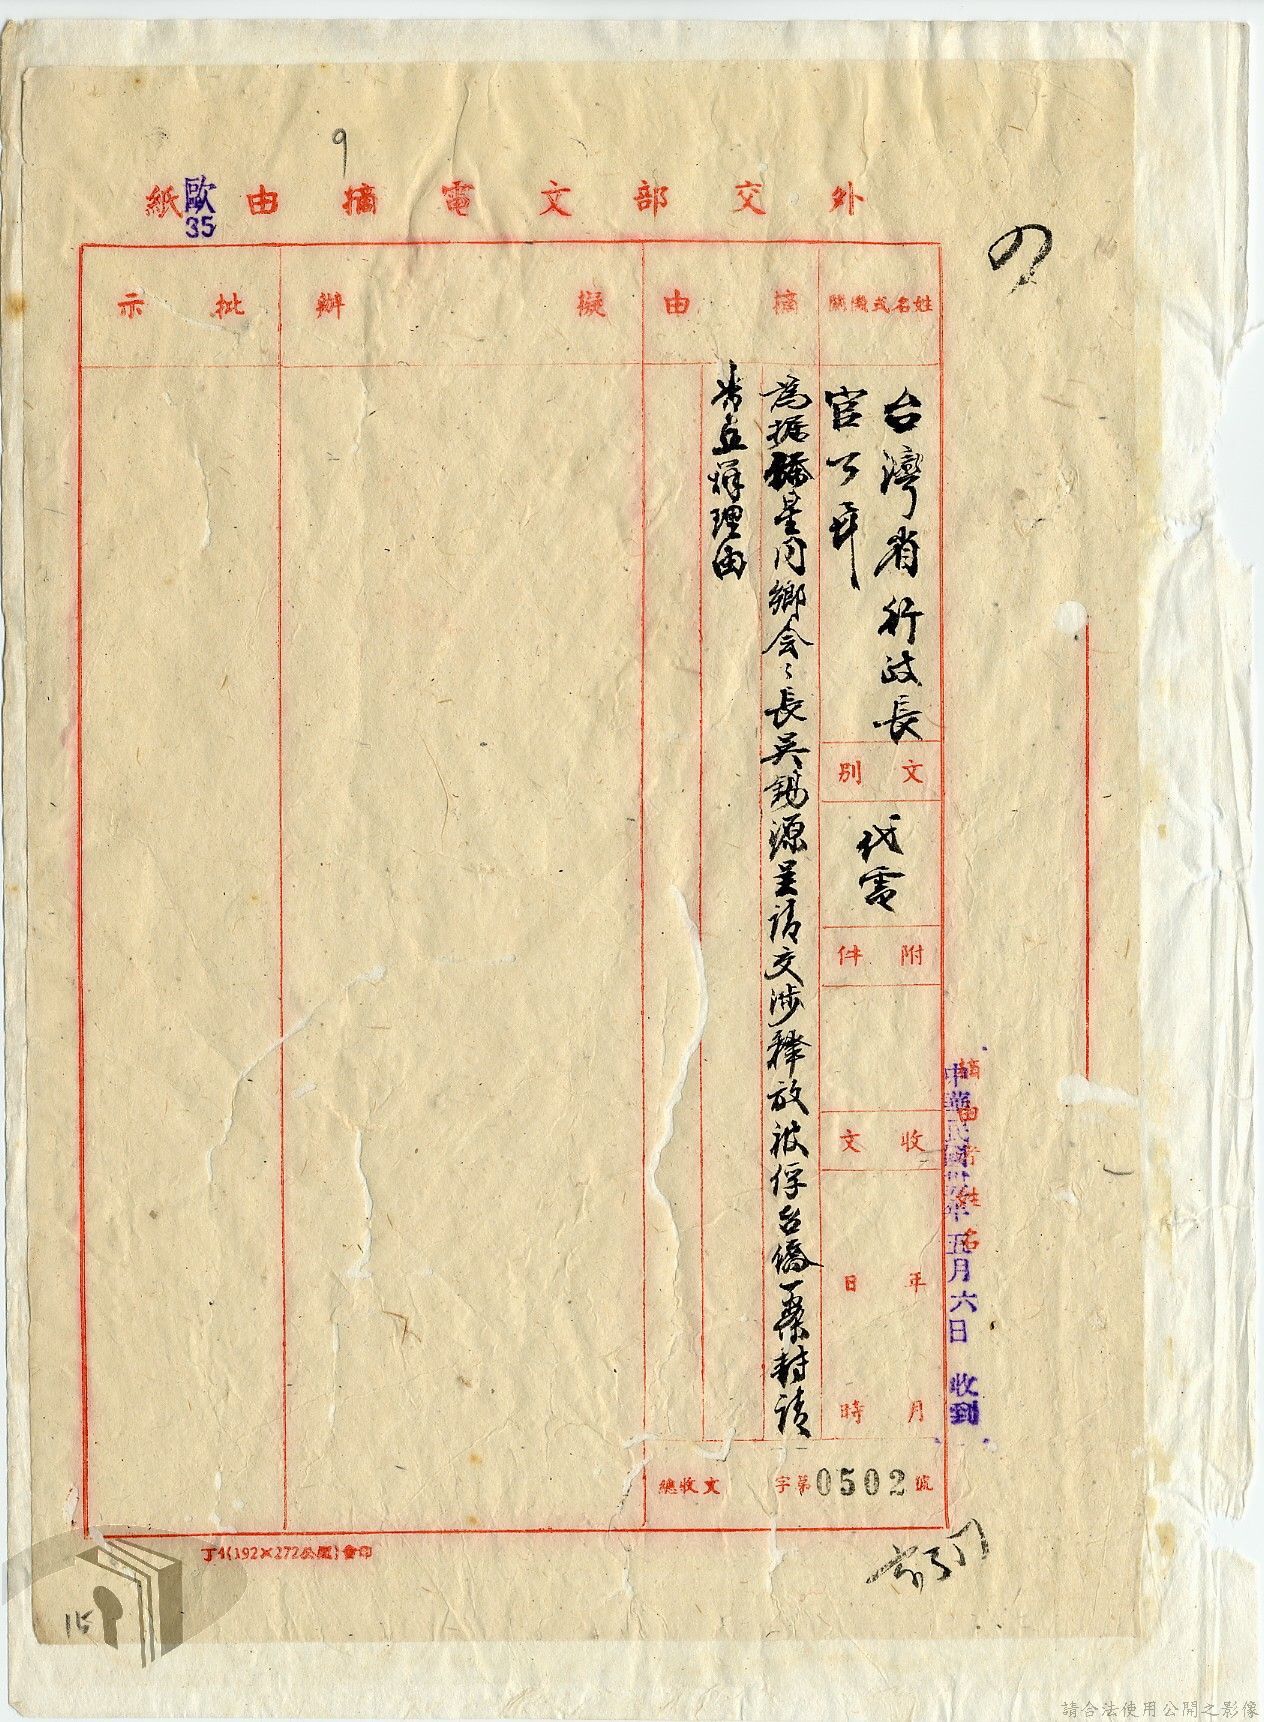 9
外交部文電摘由紙
歐
35
姓名或機關
摘由
擬辦
批示
台灣省行政長
官公弄
文別
代電
附件
收文
年月日時
為據僑星同鄉会〻長吳錫源呈請交涉釋放被俘台僑一案封請
察立祥理由
總收文 字第0502號
摘由者姓名
中華民國卅五年五月六日 收到
丁4(192×272公厘)會印
15
請合法使用公開之影像